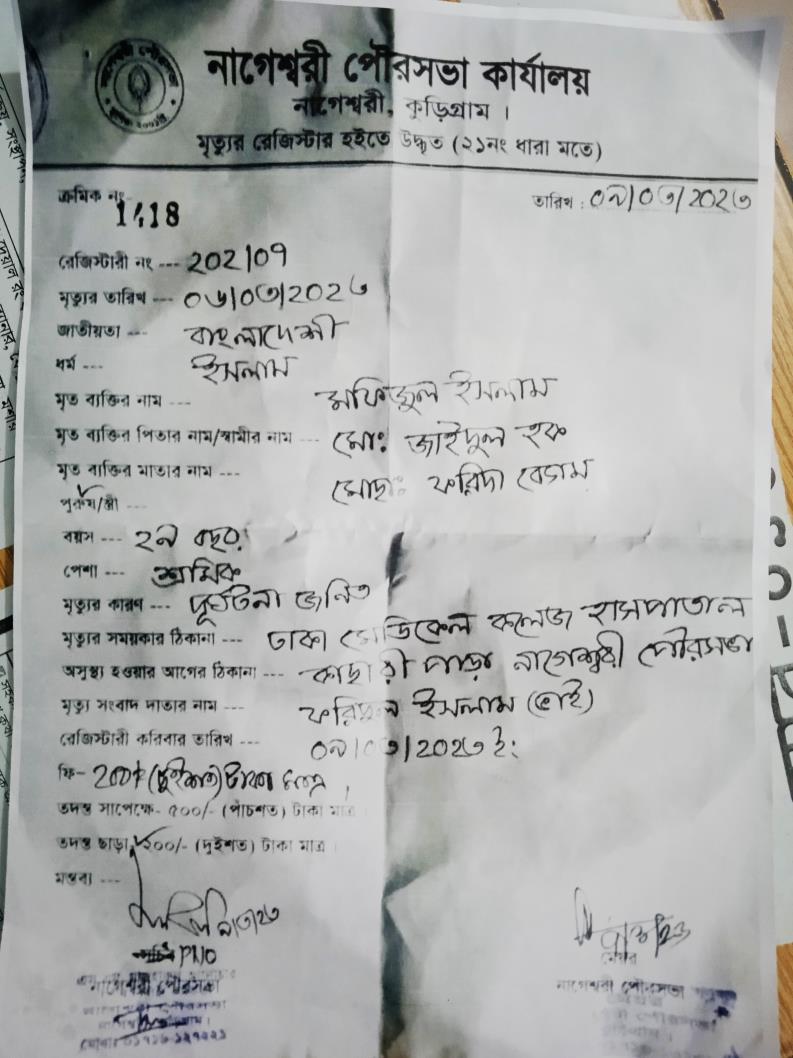 নাগেশ্বরী পৌরসভা কার্যালয়
নাগেশ্বরী, কুড়িগ্রাম।
মৃত্যুর রেজিস্টার হইতে উদ্ধৃত (২১নং ধারা মতে)
ক্রমিক নং- 1418
তারিখ : ০৯/০৩/2০2৩
রেজিস্টারী নং --- 202/০7
মৃত্যুর তারিখ --- ০৬/০৩/2০2৩
জাতীয়তা --- বাংলাদেশী
ধর্ম --- ইসলাম
মৃত ব্যক্তির নাম --- মফিজুল ইসলাম
মৃত ব্যক্তির পিতার নাম/স্বামীর নাম --- মোঃ জাইদুল হক
মৃত ব্যক্তির মাতার নাম --- মোছাঃ ফরিদা বেগম
পুরুষ/স্ত্রী ---
বয়স --- ২৯ বছর
পেশা --- শ্রমিক
মৃত্যুর কারণ --- দূর্ঘটনা জনিত
মৃত্যুর সময়কার ঠিকানা --- ঢাকা মেডিকেল কলেজ হাসপাতাল
অসুস্থ্য হওয়ার আগের ঠিকানা --- কাছারী পাড়া নাগেশ্বরী পৌরসভা
মৃত্যু সংবাদ দাতার নাম --- ফরিদুল ইসলাম (ভাই)
রেজিস্টারী করিবার তারিখ --- ০৯/০৩/2০2৩ ইং
ফি- 200/- (দুইশত) টাকা মাত্র।
তদন্ত সাপেক্ষে- ৫০০/- (পাঁচশত) টাকা মাত্র।
তদন্ত ছাড়া- ২০০/- (দুইশত) টাকা মাত্র।
মন্তব্য ---
PNO
মেয়র
নাগেশ্বরী পৌরসভা
নাগেশ্বরী পৌরসভা